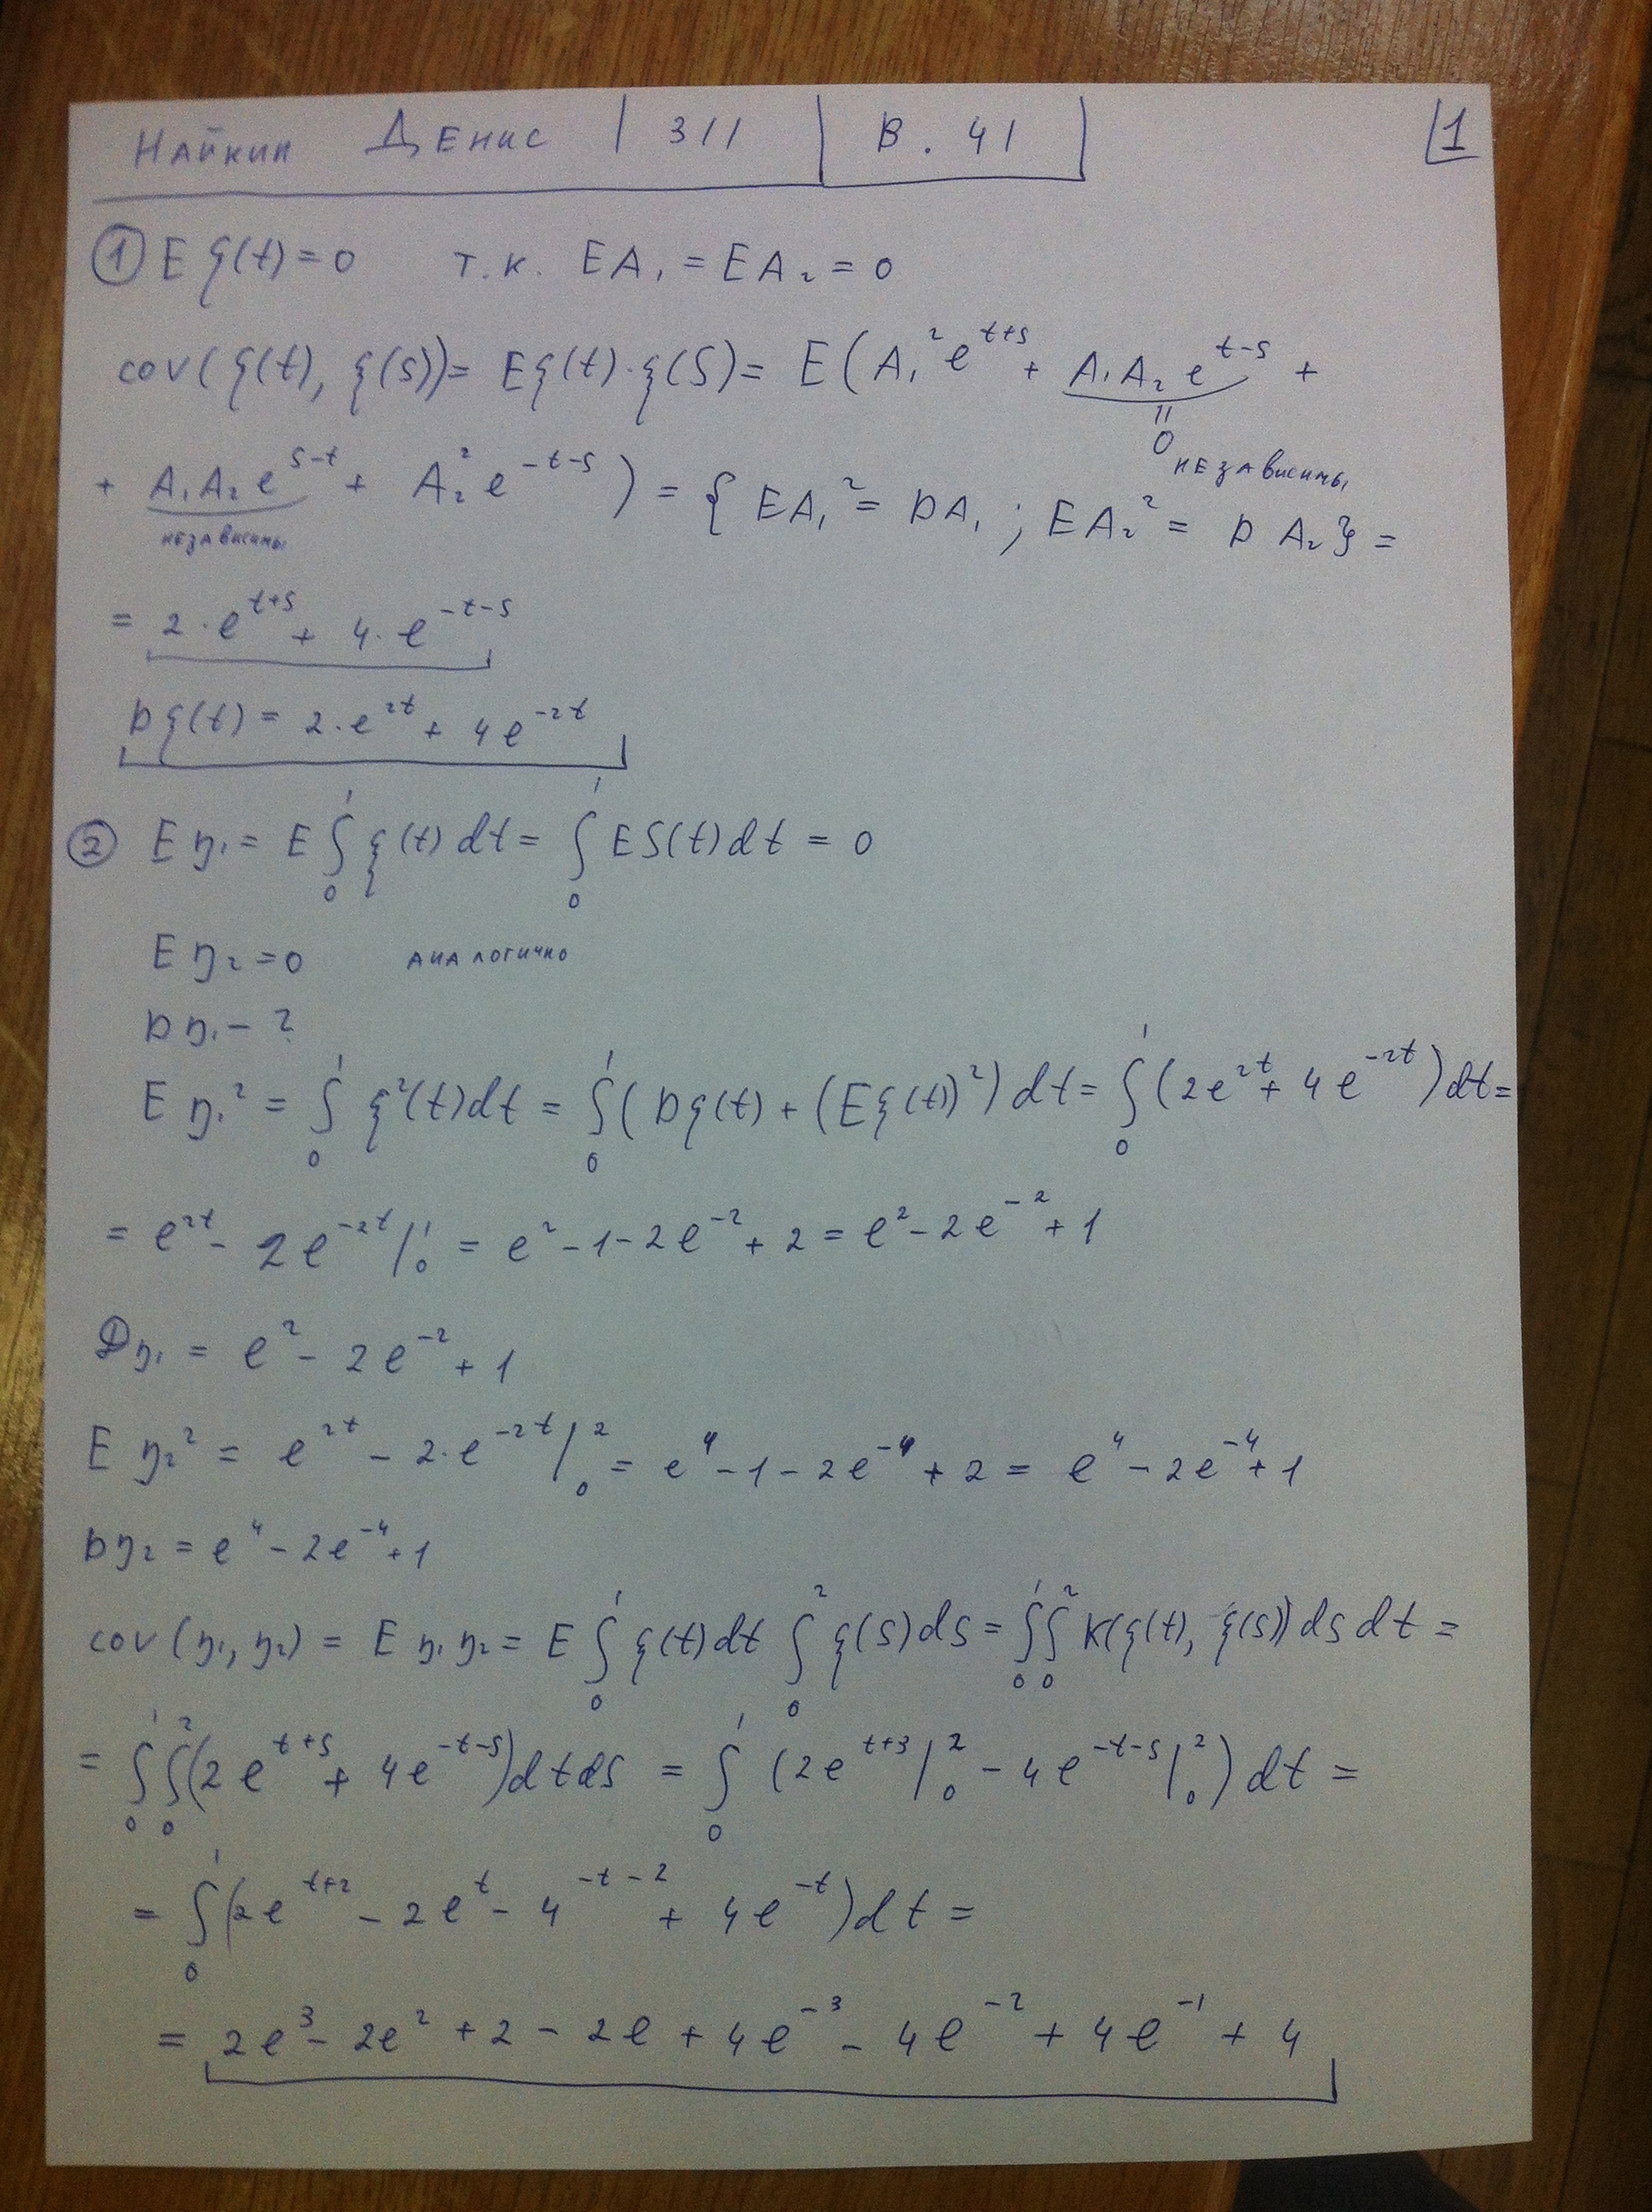 Найкин Денис | 311 | В. 41
1
① E ξ(t) = 0 т.к. EA₁ = EA₂ = 0
cov(ξ(t), ξ(s)) = Eξ(t)·ξ(s) = E(A₁² e^{t+s} + A₁A₂ e^{t-s} +
= 0 независимы
+ A₁A₂ e^{s-t} + A₂² e^{-t-s}) = {EA₁² = DA₁; EA₂² = DA₂} =
независимы
= 2·e^{t+s} + 4·e^{-t-s}
Dξ(t) = 2·e^{2t} + 4e^{-2t}
② Eη₁ = E∫₀¹ ξ(t)dt = ∫₀¹ Eξ(t)dt = 0
Eη₂ = 0 аналогично
Dη₁ - ?
Eη₁² = ∫₀¹ ξ²(t)dt = ∫₀¹ (Dξ(t) + (Eξ(t))²)dt = ∫₀¹ (2e^{2t} + 4e^{-2t})dt =
= e^{2t} - 2e^{-2t} |₀¹ = e² - 1 - 2e^{-2} + 2 = e² - 2e^{-2} + 1
Dη₁ = e² - 2e^{-2} + 1
Eη₂² = e^{2t} - 2·e^{-2t} |₀² = e⁴ - 1 - 2e^{-4} + 2 = e⁴ - 2e^{-4} + 1
Dη₂ = e⁴ - 2e^{-4} + 1
cov(η₁, η₂) = Eη₁η₂ = E∫₀¹ ξ(t)dt ∫₀² ξ(s)ds = ∫₀¹∫₀² K(ξ(t), ξ(s))dsdt =
= ∫₀¹∫₀² (2e^{t+s} + 4e^{-t-s})dtds = ∫₀¹ (2e^{t+s} |₀² - 4e^{-t-s} |₀²)dt =
= ∫₀¹ (2e^{t+2} - 2e^{t} - 4^{-t-2} + 4e^{-t})dt =
= 2e³ - 2e² + 2 - 2e + 4e^{-3} - 4e^{-2} + 4e^{-1} + 4